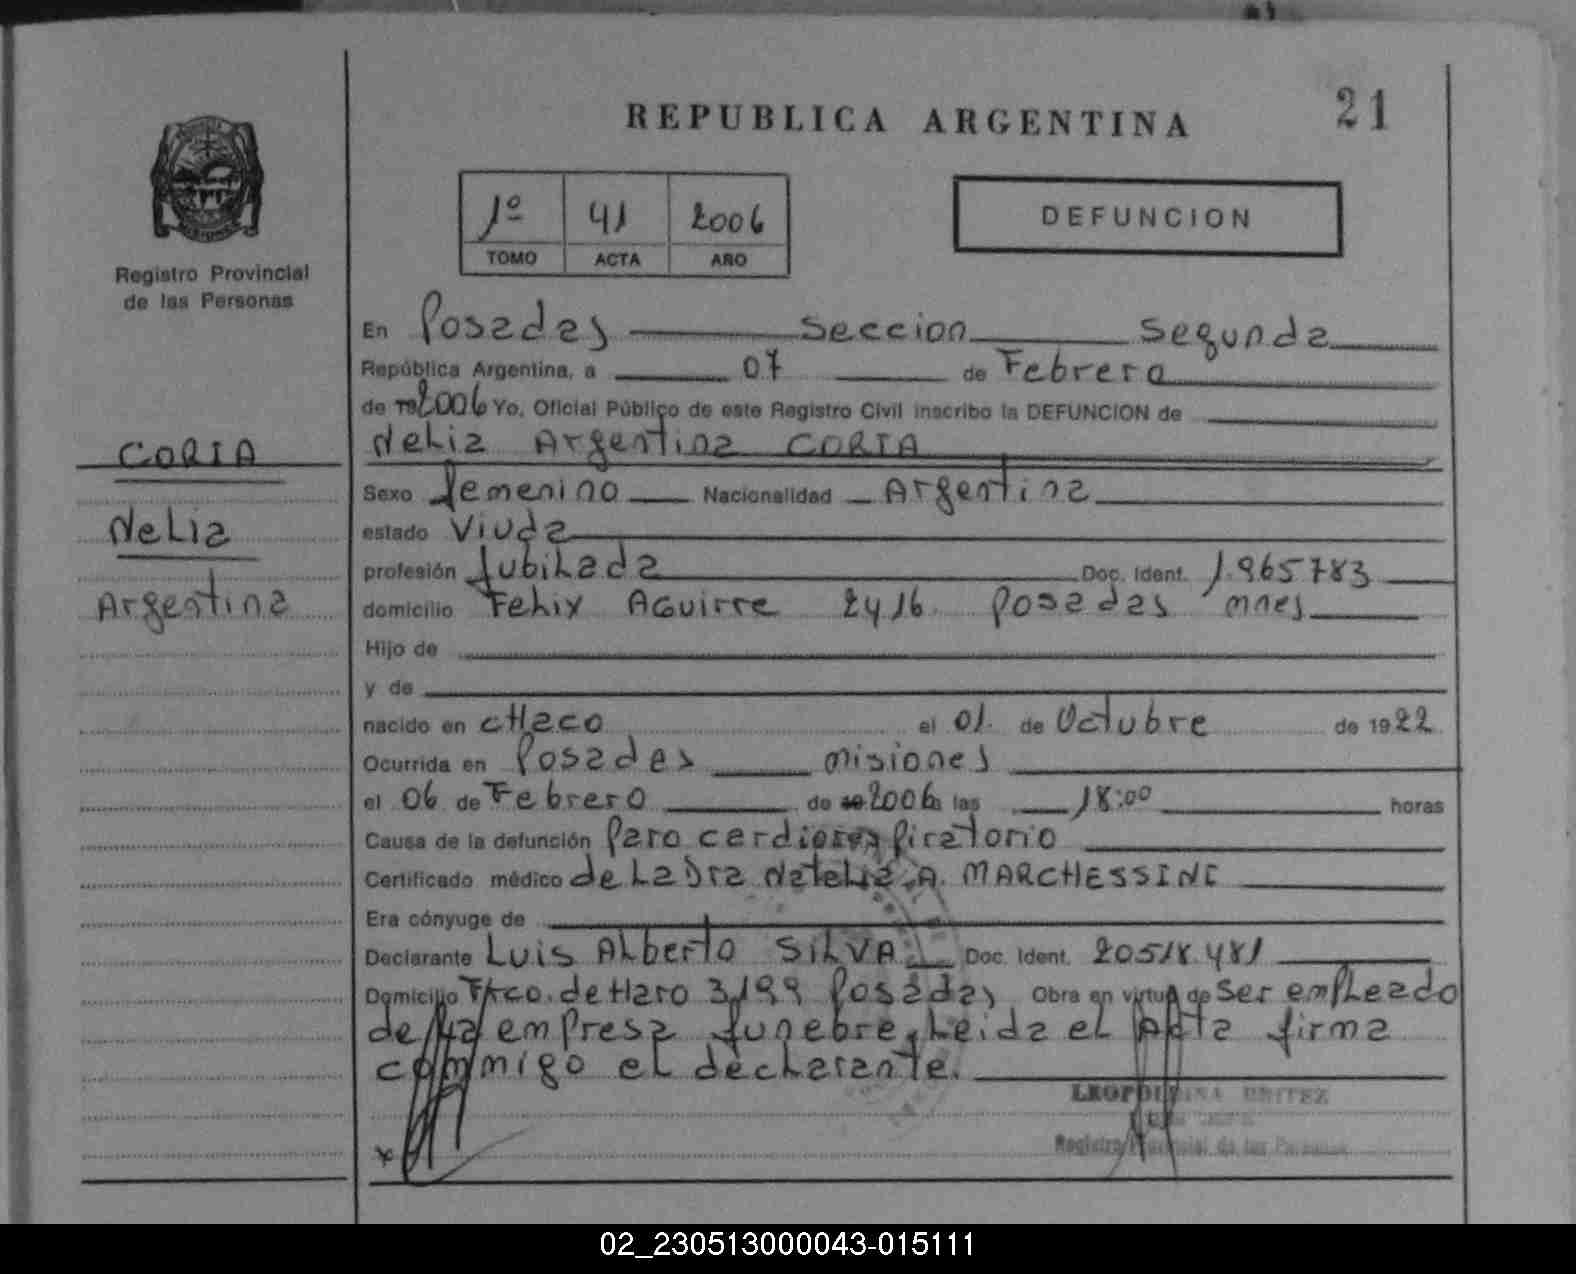 21
REPUBLICA ARGENTINA
1º 41 2006
TOMO ACTA AÑO
DEFUNCION
Registro Provincial
de las Personas
CORIA
Nelia
Argentina
En Posadas Seccion Segunda
República Argentina, a 07 de Febrero
de 19 2006 Yo, Oficial Público de este Registro Civil inscribo la DEFUNCION de
Nelia Argentina CORIA
Sexo femenino Nacionalidad Argentina
estado Viuda
profesión Jubilada Doc. Ident. 1.965783
domicilio Felix Aguirre 2416 Posadas mnes
Hijo de
y de
nacido en CHaco el 01. de Octubre de 1922
Ocurrida en Posadas misiones
el 06 de Febrero de 2006 a las 18:00 horas
Causa de la defunción Paro cardiorespiratorio
Certificado médico de La Dra Natalia A. MARCHESSINI
Era cónyuge de
Declarante Luis Alberto SILVA Doc. Ident. 20518.481
Domicilio Fco. de Haro 3199 Posadas Obra en virtud de Ser empleado
de la empresa funebre, Leida el Acta firma
commigo el declarante.
LEOPOLDINA BRITEZ
Registro Provincial de las Personas
02_230513000043-015111